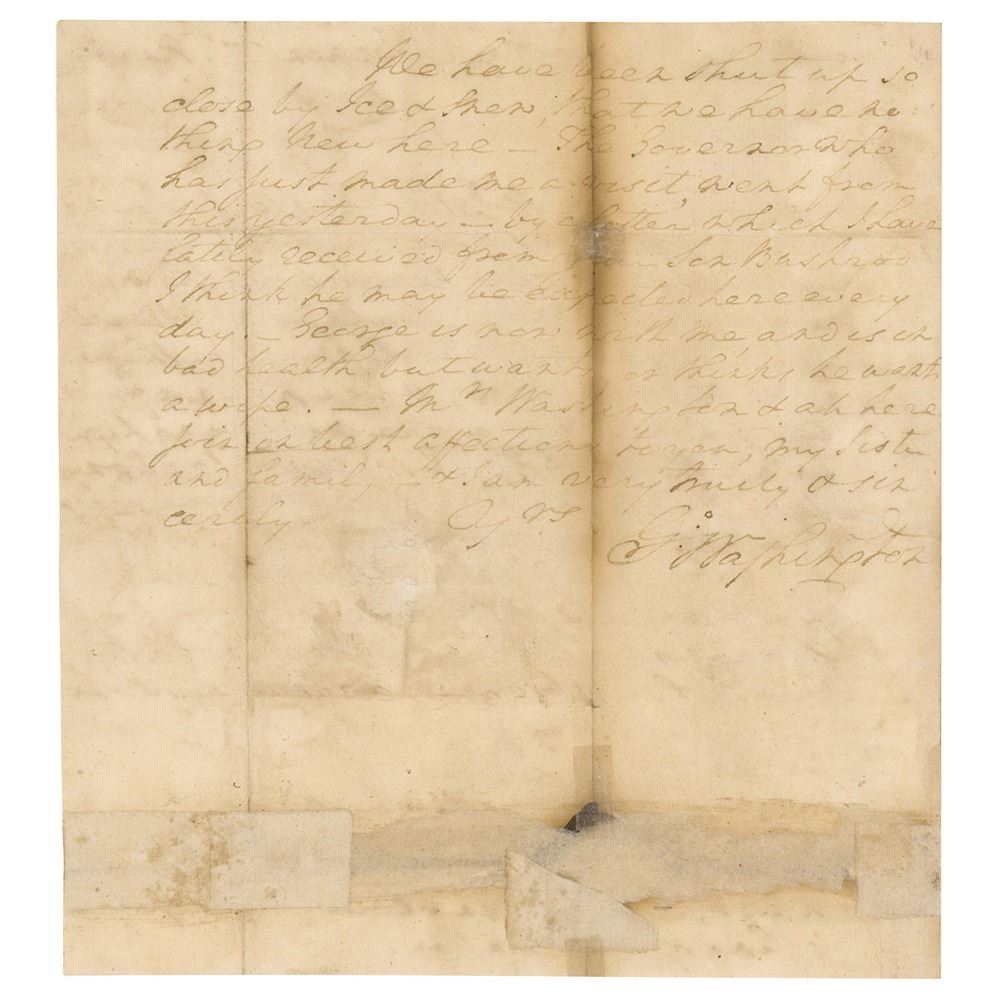 We have been shut up so
close by Ice & Snow, that we have no:
thing New here — The Governor who
has just made me a visit, went from
this yesterday — by a letter which I have
lately received from your Son Bushrod
I think he may be expected here every
day. — George is now with me, and is in
bad health, but wants, or thinks he wants
a wife. — Mrs Washington & all here
join in best affections to you, my Sister
and family — & I am very truely & sin
cerely Yrs
Go: Washington